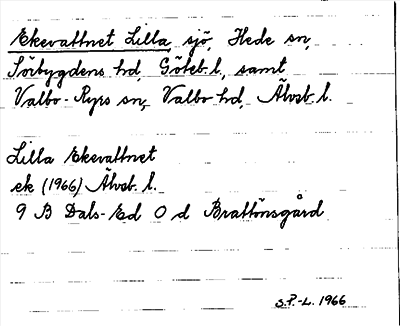 Ekevattnet Lilla, sjö, Hede sn,
Sörbygdens hd, Göteb. l., samt
Valbo-Ryrs sn, Valbo hd, Älvsb. l.
Lilla Ekevattnet
ek (1966) Älvsb. l.
9 B Dals-Ed 0 d Brattönsgård
S.P.-L. 1966